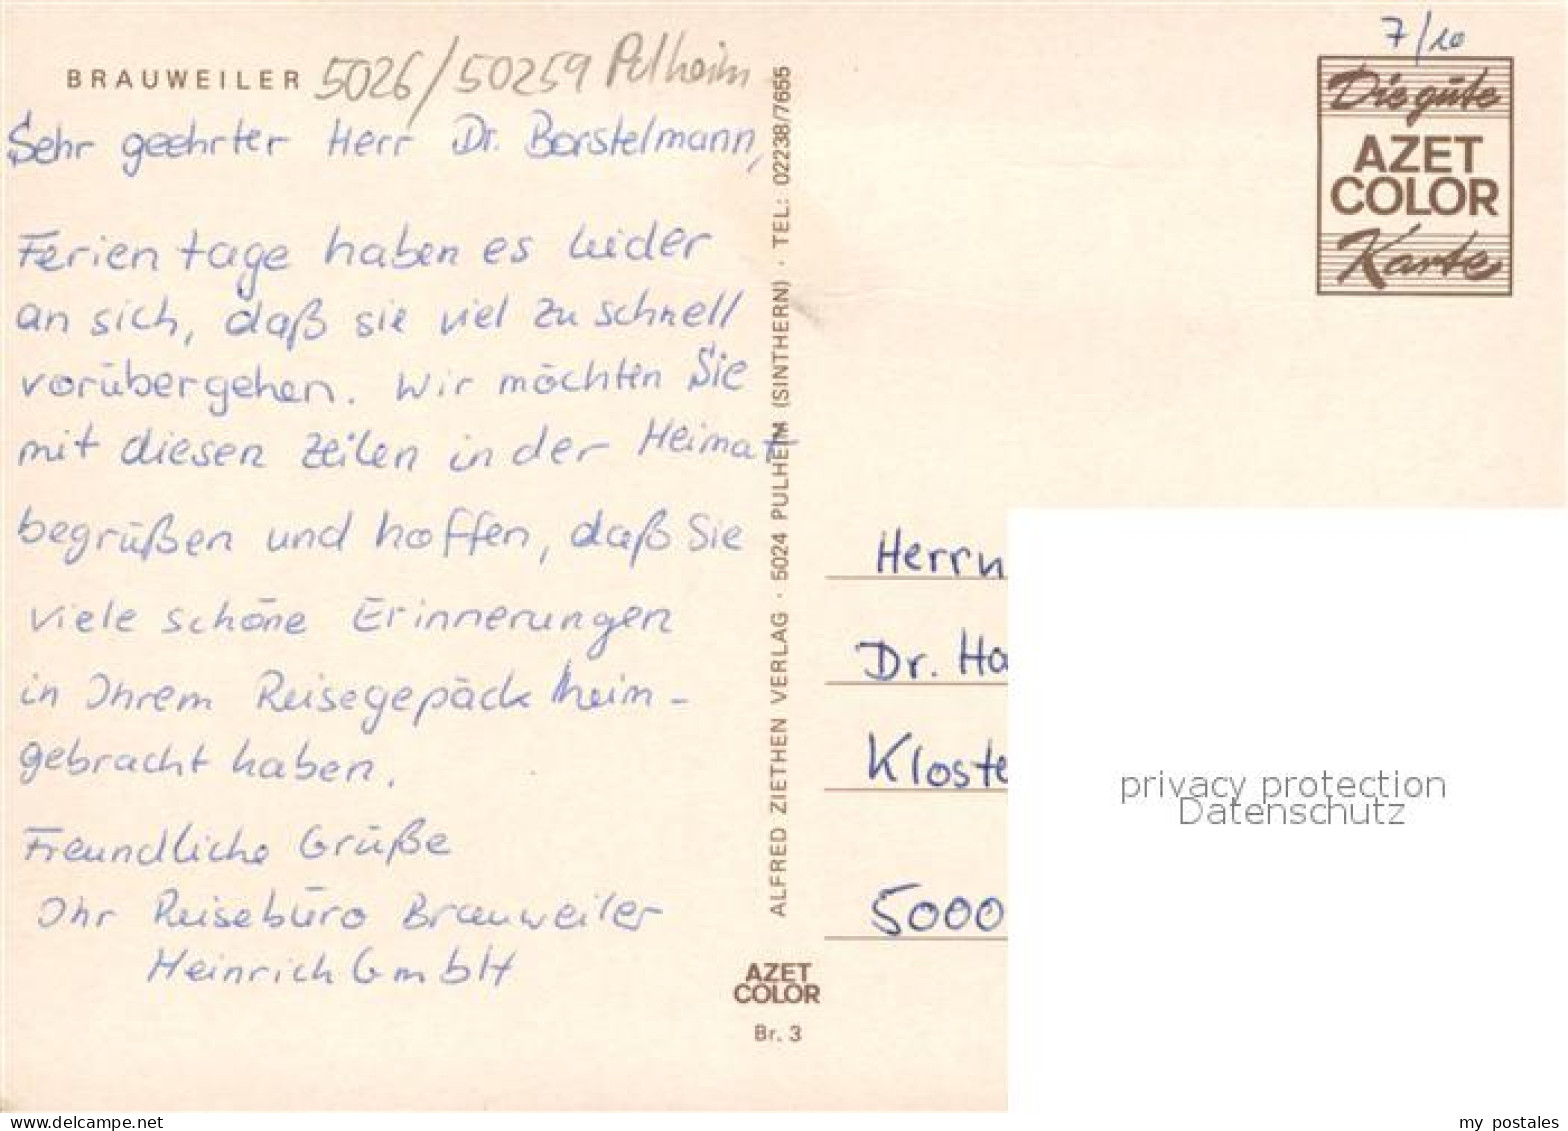 BRAUWEILER 5026/50259 Pulheim
Sehr geehrter Herr Dr. Borstelmann,
Ferientage haben es leider
an sich, daß sie viel zu schnell
vorübergehen. Wir möchten Sie
mit diesen Zeilen in der Heimat
begrüßen und hoffen, daß Sie
viele schöne Erinnerungen
in Ihrem Reisegepäck heim-
gebracht haben.
Freundliche Grüße
Ihr Reisebüro Brauweiler
Heinrich GmbH
ALFRED ZIETHEN VERLAG · 5024 PULHEIM (SINTHERN) · TEL: 02238/7655
AZET
COLOR
Br. 3
7/10
Die gute
AZET
COLOR
Karte
Herrn
Dr. Ha
Kloste
5000
privacy protection
Datenschutz
delcampe.net
my_postales